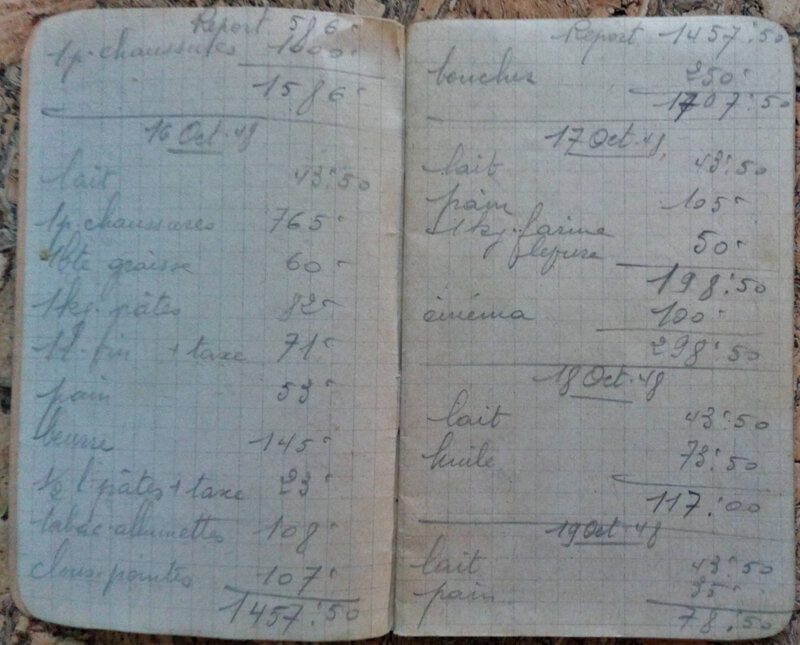 Report 586-
1p. chaussures 1000-
1586-
16 Oct. 48
lait 43:50
1p. chaussures 765-
1bte graisse 60-
1kg. pâtes 82-
1l. vin + taxe 71-
pain 53-
beurre 145-
1/2 l pâtes + taxe 23-
tabac-allumettes 108-
clous-pointes 107-
1457:50
Report 1457:50
boucher 250-
1707:50
17 Oct. 48
lait 43:50
pain 105-
1kg. farine
levure 50-
198:50
cinéma 100-
298:50
18 Oct. 48
lait 43:50
huile 73:50
117:00
19 Oct. 48
lait 43:50
pain 35-
78:50